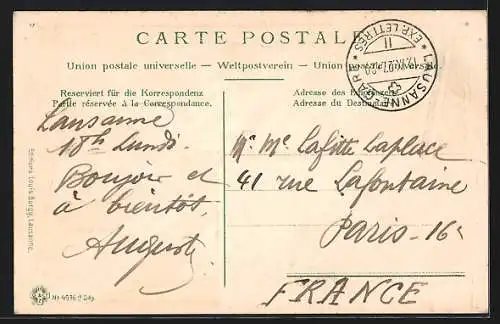 CARTE POSTALE
Union postale universelle — Weltpostverein — Union postale universelle.
Reserviert für die Korrespondenz
Partie réservée à la Correspondance.
Adresse des Empfängers
Adresse du Destinataire
LAUSANNE GARE
* EXP. LETTRES *
II
Lausanne
18h Lundi.
Boujour et
à bientôt.
August
M. Me Lafitte Laplace
41 rue Lafontaine
Paris - 16e
FRANCE
Editeurs Louis Burgy, Lausanne.